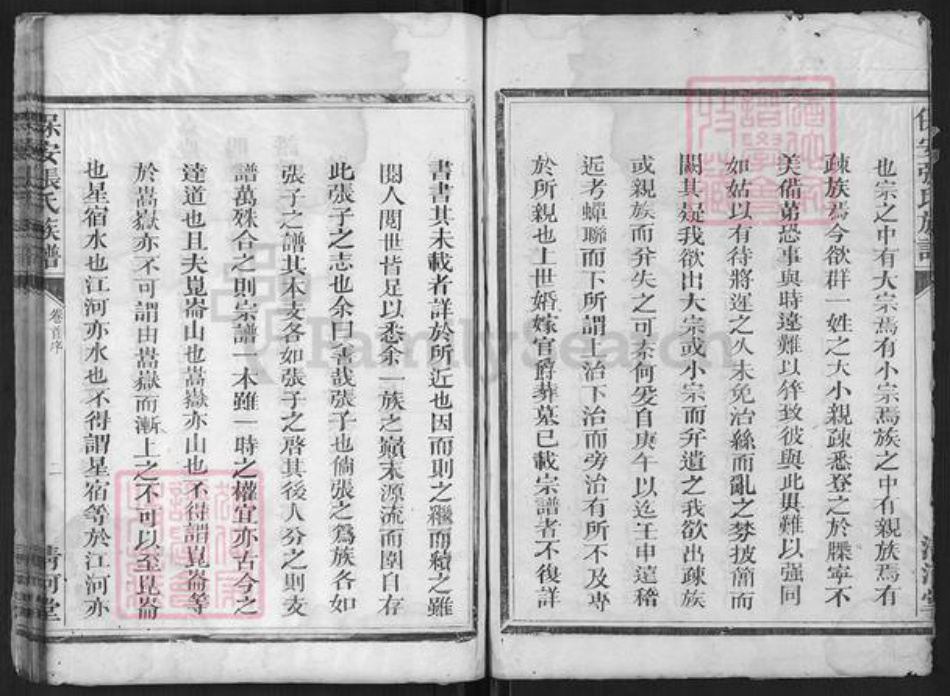 也宗之中有大宗焉有小宗焉族之中有親族焉有
疎族焉今欲群一姓之大小親疎悉登之於牒寧不
美備第恐事與時違難以猝致彼與此異難以強同
如姑以有待將遲之久未免治絲而亂之棼披簡而
闕其疑我欲出大宗或小宗而弁遺之我欲出疎族
或親族而弁失之可奈何爰自庚午以迄壬申遠稽
近考蟬聯而下所謂上治下治而旁治有所不及専
於所親也上世婚嫁官爵葬墓已載宗譜者不復詳
保安張氏族譜
卷首序
二
清河堂
書書其未載者詳於所近也因而則之繼而續之雖
閱人閱世皆足以悉余一族之巔末源流而圍自存
此張子之志也余曰善哉張子也倘張之爲族各如
張子之譜其本支各如張子之啓其後人分之則支
譜萬殊合之則宗譜一本雖一時之權宜亦古今之
達道也且夫崑崙山也嵩嶽亦山也不得謂崑崙等
於嵩嶽亦不可謂由嵩嶽而漸上之不可以至崑崙
也星宿水也江河亦水也不得謂星宿等於江河亦
FamilySearch